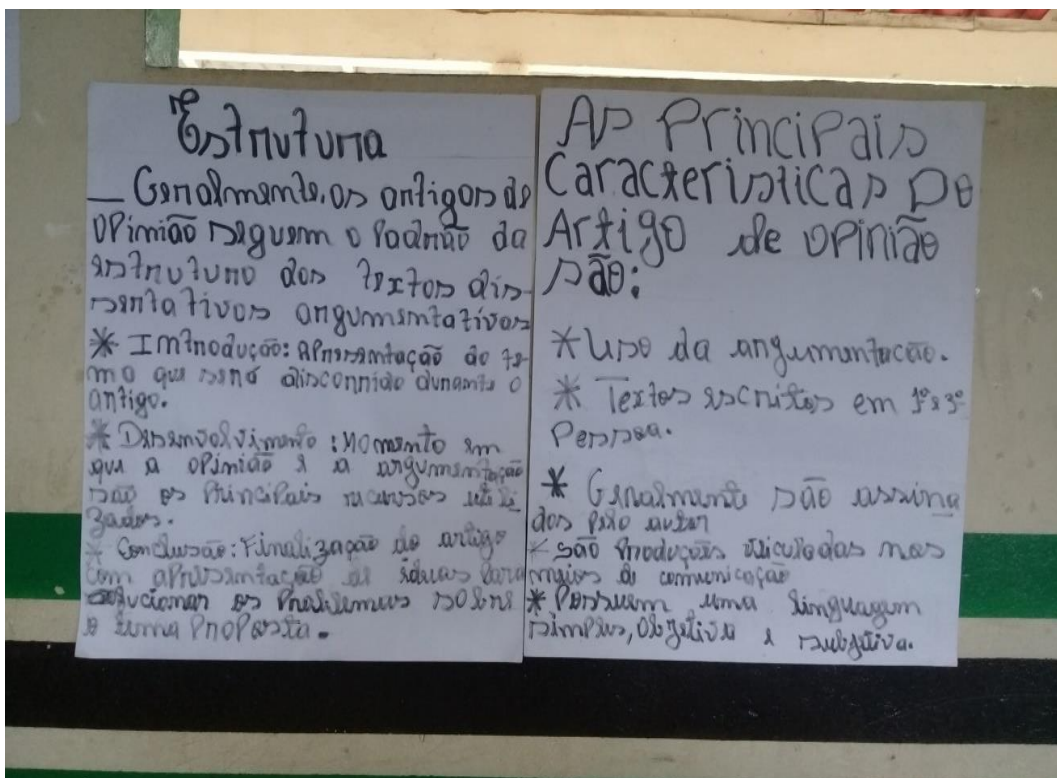 Estrutura
— Geralmente, os artigos de
opinião seguem o Padrão da
estrutura dos textos dis-
sertativos argumentativos
* Introdução: apresentação do te-
ma que será discorrido durante o
artigo.
* Desenvolvimento: Momento em
que a opinião e a argumentação
são os Principais recursos utili
zados.
* Conclusão: Finalização do artigo
com apresentação de ideias para
solucionar os Problemas sobre
o tema Proposta.
As Principais
Características Do
Artigo de opinião
são:
* Uso da argumentação.
* Textos escritos em 1º e 3º
Pessoa.
* Geralmente são assina
dos pelo autor
* são Produções veiculadas nos
meios de comunicação
* Possuem uma linguagem
simples, Objetiva e subjetiva.